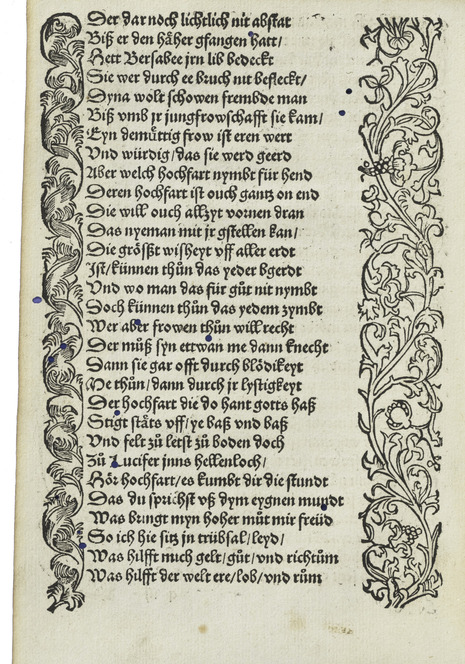 Der dar noch lichtlich nit abstat
Biß er den häher gfangen hatt/
Hett Bersabee jrn lib bedeckt
Sie wer durch ee bruch nit befleckt/
Dyna wolt schowen frembde man
Biß vmb jr jungfrowschafft sie kam/
Eyn demüttig frow ist eren wert
Vnd würdig/das sie werd geerd
Aber welch hochfart nymbt für hend
Deren hochfart ist ouch gantz on end
Die will ouch allzyt vornen dran
Das nyeman mit jr gstellen kan/
Die größzt wisheyt vff aller erdt
Jst/künnen thůn das yeder bgerdt
Vnd wo man das für gůt nit nymbt
Doch künnen thůn das yedem zymbt
Wer aber frowen thůn will recht
Der můß syn ettwan me dann knecht
Dann sie gar offt durch blödikeyt
Me thůn/dann durch jr lystigkeyt
Der hochfart die do hant gotts haß
Stigt stäts vff/ye baß vnd baß
Vnd felt zů letst zů boden doch
Zů Lucifer jnns hellenloch/
Hör hochfart/es kumbt dir die stundt
Das du sprichst vß dym eygnen mundt
Was bringt myn hoher můt mir freüd
So ich hie sitz jn trübsal/leyd/
Was hilfft mich gelt/gůt/vnd richtům
Was hilfft der welt ere/lob/vnd rům